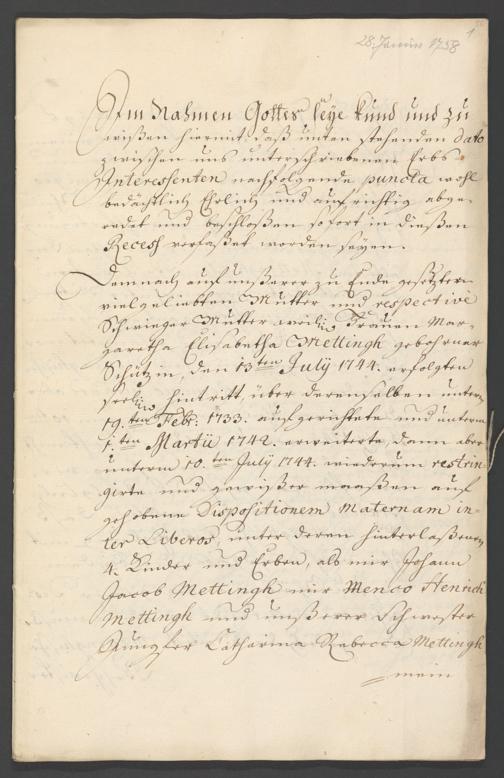 28. Januar 1758
1
Im Nahmen Gottes seye kund und zu
wißen hiermit, daß unten stehenden dato
zwischen uns unterschriebenen Erbs-
Interessenten nachfolgende puncta wohl
bedächtlich Ehrlich und aufrichtig abge-
redet und beschloßen sofort in dießen
Recess verfaßet worden seyen.
Demnach auf unßerer zu Ende gesetzten
vielgeliebten Mutter und respective
Schwieger Mutter weil. Frauen Mar-
garetha Elisabetha Mettingh gebohrner
Schützin, den 13ten July 1744. erfolgten
seelig. hintritt, über derenselben unterm
19.ten Febr. 1733. aufgerichtete und unterm
1.ten Martii 1742. erweiterte, dann aber
unterm 10.ten July 1744. wiederum restrin-
girte und gewißer maaßen auf
gehobene Dispositionem Maternam in-
ter Liberos, unter deren hinterlaßenen
4. Kinder und Erben, als mir Johann
Jacob Mettingh mir Menco Henrich
Mettingh und unßerer Schwester
Catharina Rebecca Mettingh
mein